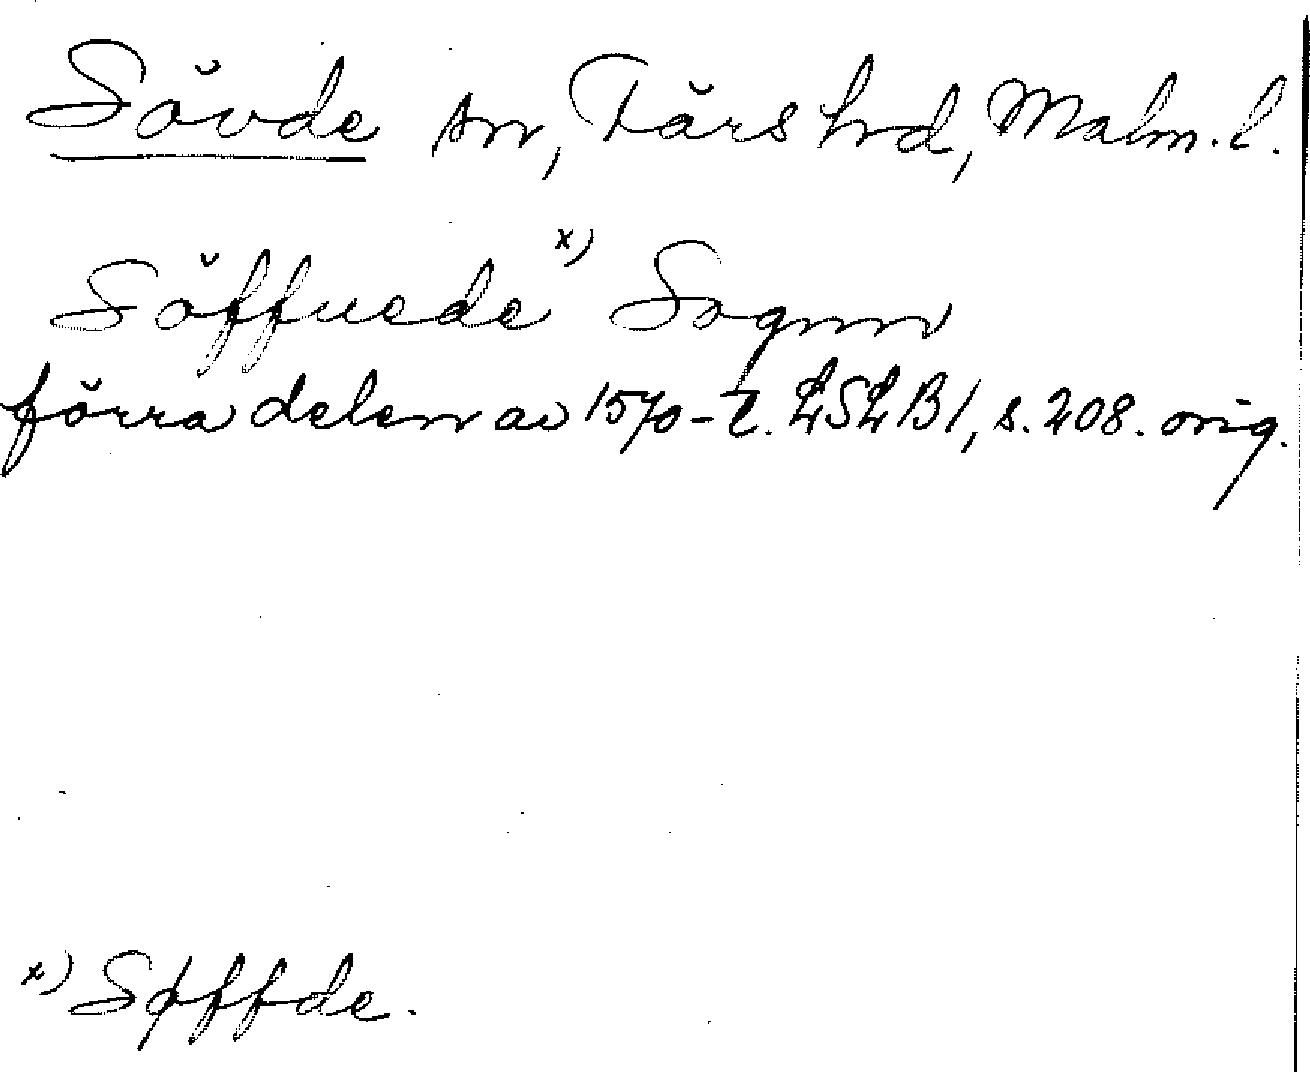 Sövde sn, Färs hrd, Malm. l.
Söffuede x) Sognn
förra delen av 1570-t. LSLB1, s. 208. orig.
x) Søffde.